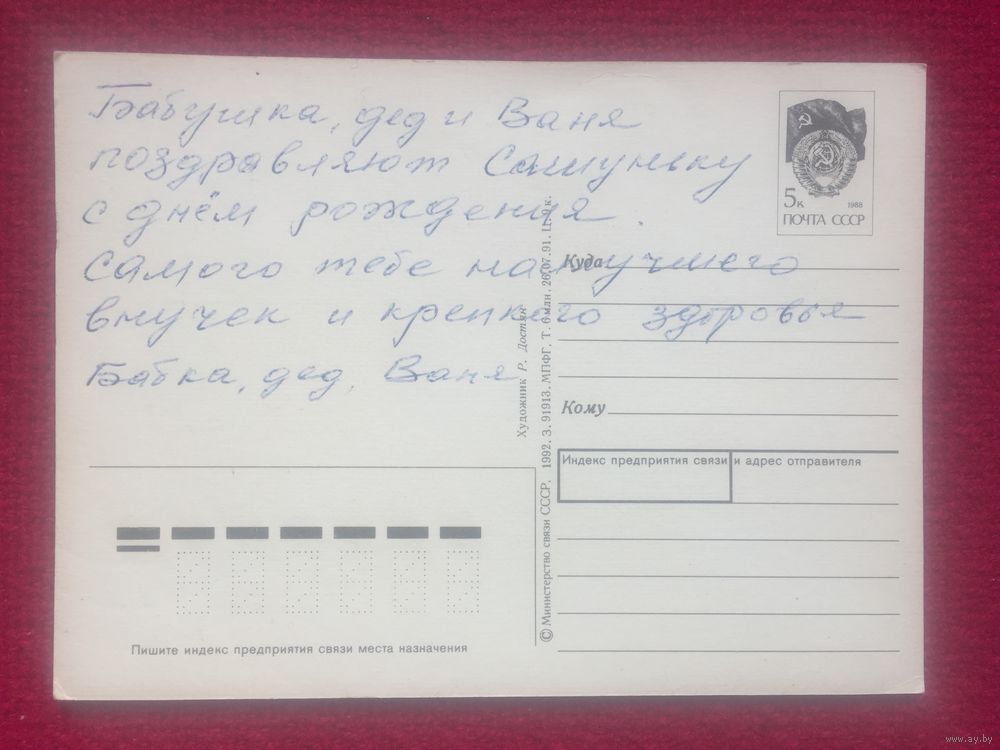 Бабушка, дед и Ваня
поздравляют Сашуньку
с днём рождения.
Самого тебе наилучшего
внучек и крепкого здоровья
Бабка, дед, Ваня
5к 1988
ПОЧТА СССР
Куда
Кому
Индекс предприятия связи и адрес отправителя
Художник Р. Достян
© Министерство связи СССР, 1992. З. 91913. МПФГ. Т. 6 млн. 26.07.91. Ц. к.
Пишите индекс предприятия связи места назначения
www.ay.by